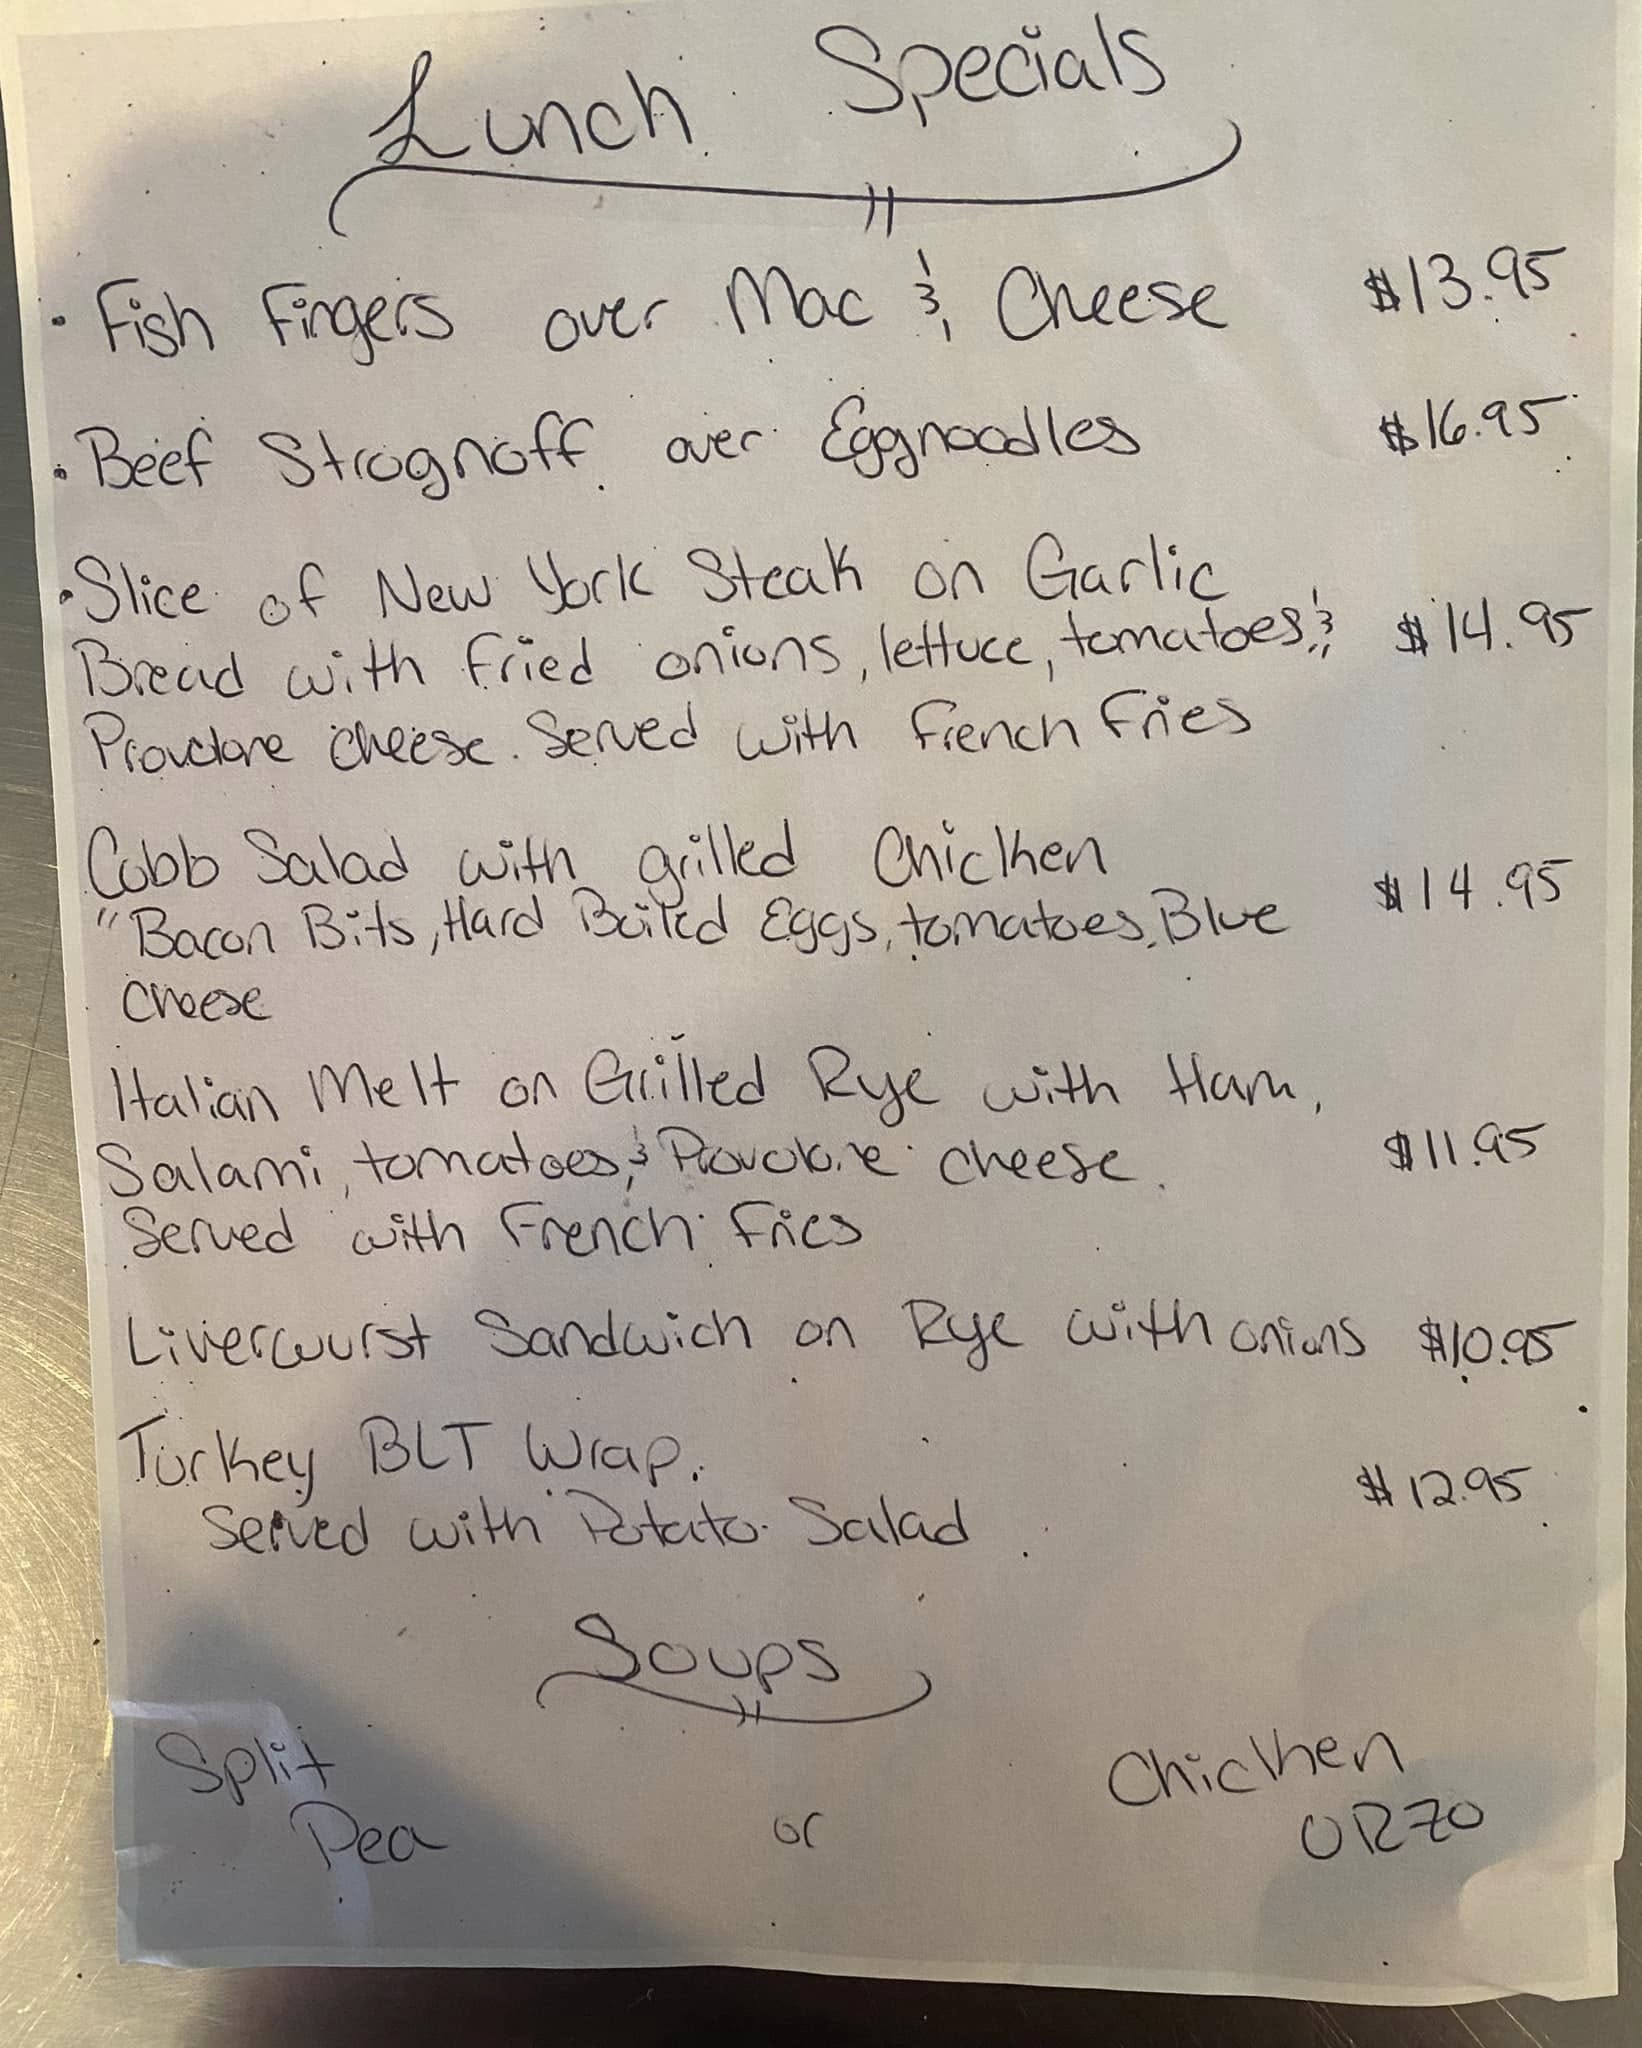 Lunch Specials
· Fish Fingers over Mac & Cheese $13.95
· Beef Strognoff over Eggnoodles $16.95
· Slice of New York Steak on Garlic
Bread with fried onions, lettuce, tomatoes, & $14.95
Provolone cheese. Served with French Fries
Cobb Salad with grilled Chicken
"Bacon Bits, Hard Boiled Eggs, tomatoes, Blue $14.95
Cheese
Italian Melt on Grilled Rye with Ham,
Salami, tomatoes, & Provolone cheese. $11.95
Served with French Fries
Liverwurst Sandwich on Rye with onions $10.95
Turkey BLT Wrap.
Served with Potato Salad $12.95
Soups
Split
Pea
or
Chicken
ORZO